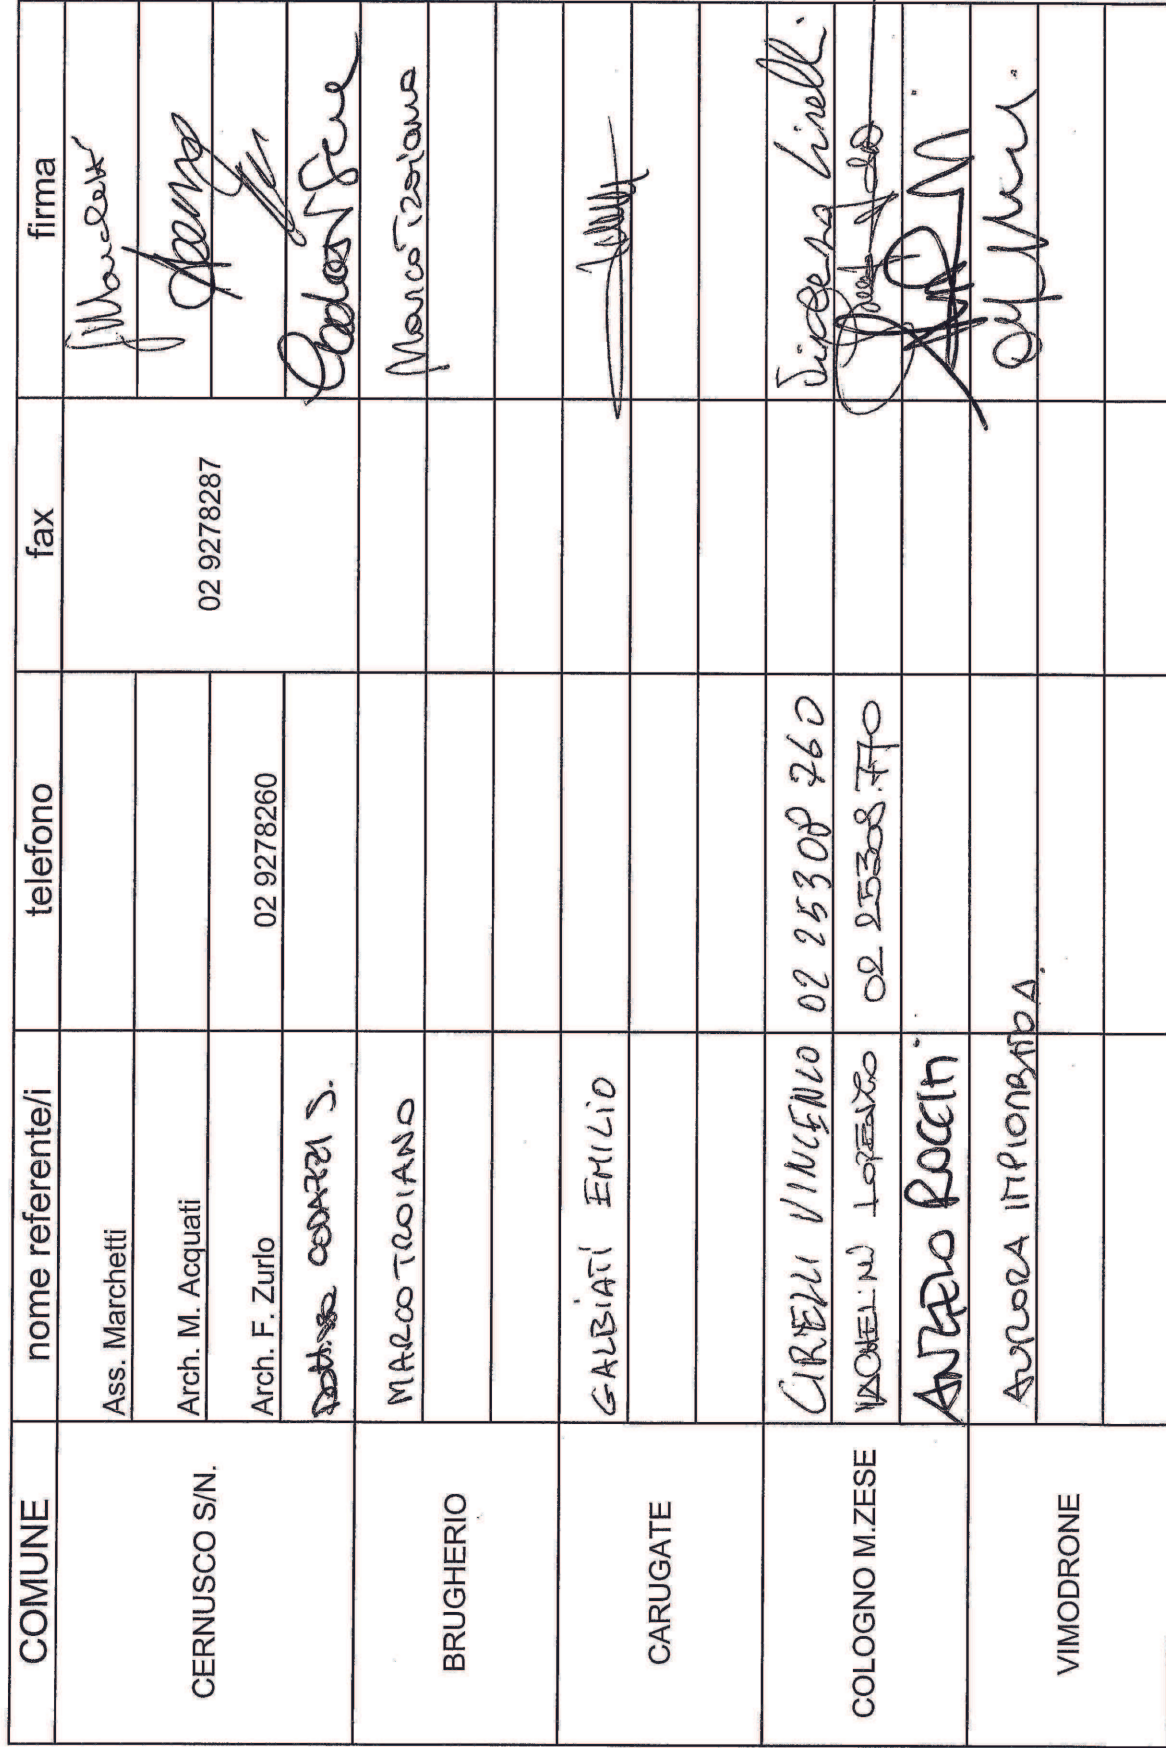 COMUNE nome referente/i telefono fax firma
CERNUSCO S/N.
Ass. Marchetti
Arch. M. Acquati
Arch. F. Zurlo 02 9278260 02 9278287
CODAZZI S.
BRUGHERIO
MARCO TROIANO Marco Troiano
CARUGATE
GALBIATI EMILIO
COLOGNO M.ZESE
CIRELLI VINCENZO 02 25308 760 Vincenzo Cirelli
LORENZO 02 25308.770
ANGELO ROCCHI
VIMODRONE
AURORA IMPIOMBATO